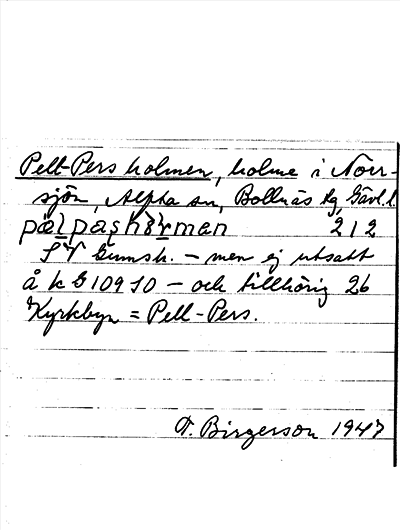 Pell-Pers holmen, holme i Norr-
sjön, Alfta sn, Bollnäs tg, Gävl. l.
pælpaʂhòɽman 212
SV Gumsh. – men ej utsatt
å k G 109 10 – och tillhörig 26
Kyrkbyn = Pell-Pers.
T. Birgerson 1947